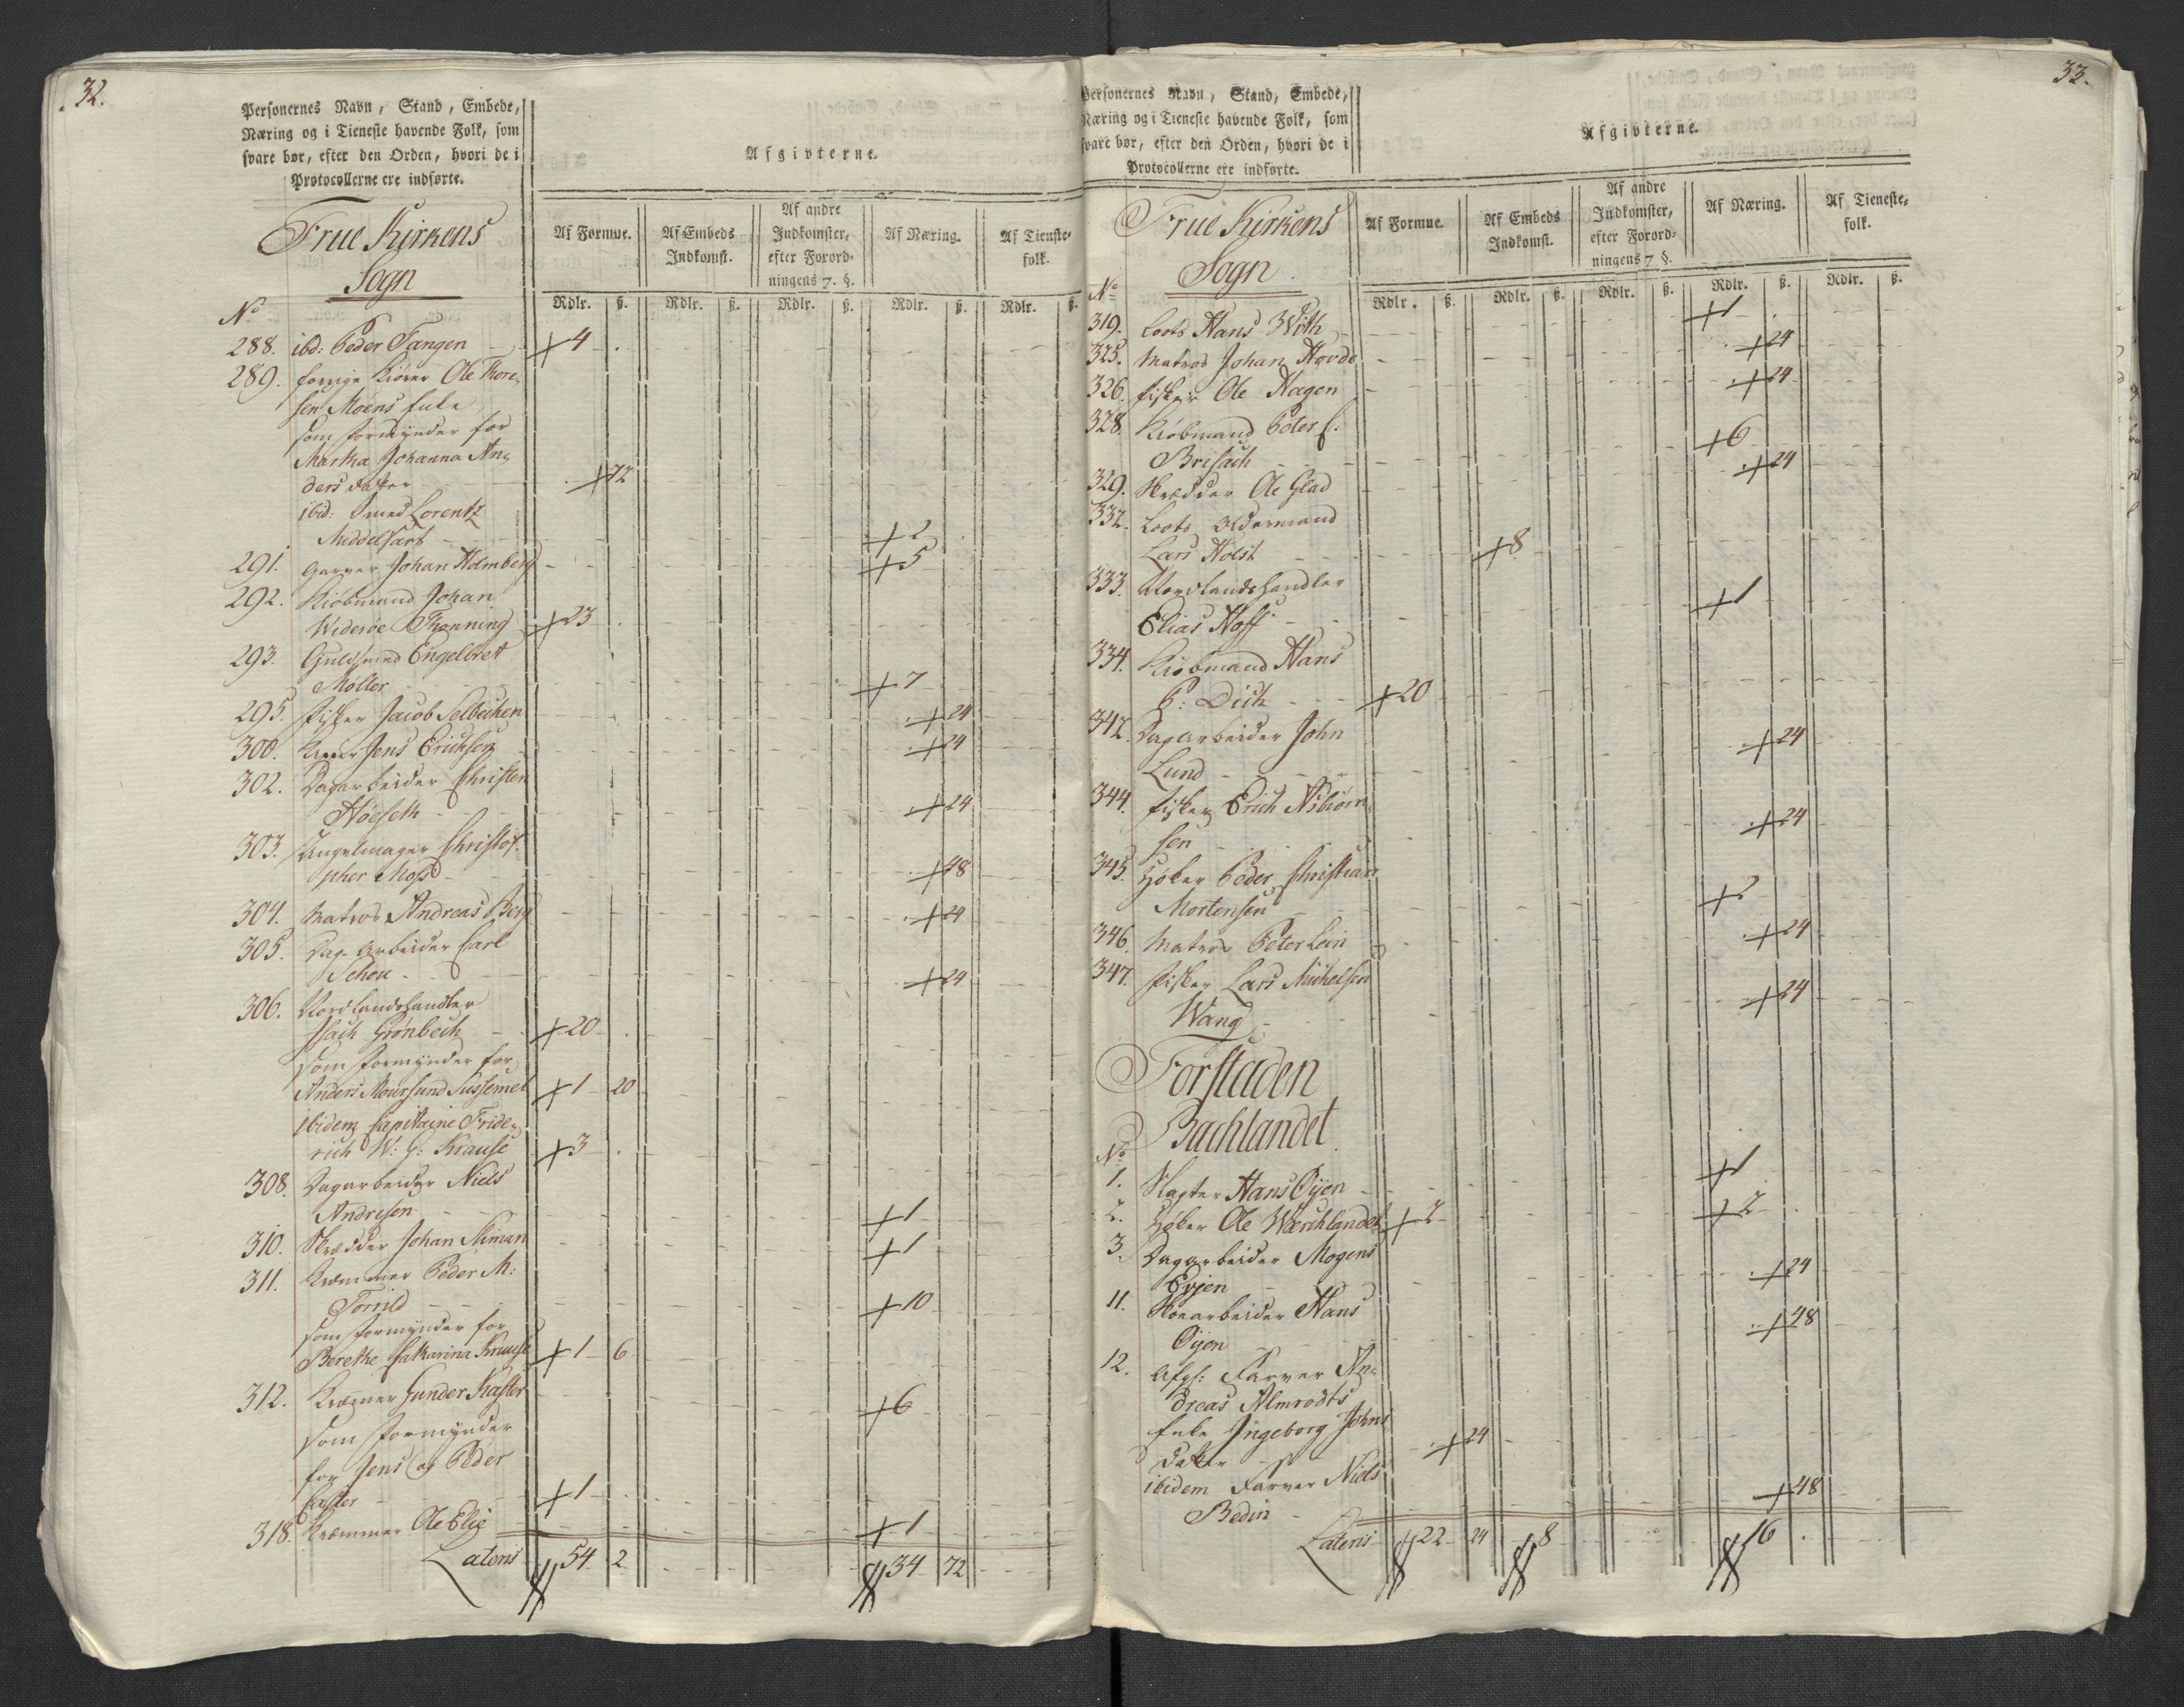 32.
Personernes Navn, Stand, Embede,
Næring og i Tieneste havende Folk, som
svare bør, efter den Orden, hvori de i
Protocollerne ere indførte.
Afgivterne.
Frue Kirkens
Sogn
Af Formue.
Af Embeds
Indkomst.
Af andre
Indkomster,
efter Forord-
ningens 7. §.
Af Næring.
Af Tieneste-
folk.
No
Rdlr. ß. Rdlr. ß. Rdlr. ß. Rdlr. ß. Rdlr. ß.
288. ibd: Peder Tangen - 4 .
289. forrige Kiører Ole Thore-
sen Moens Enke
som Formynder for
Martha Johanna An-
ders datter - . 72
ibid: Smed Lorentz
Middelfart - 2 .
291. Garver Johan Holmberg - 5
292. Kiøbmand Johan
Widerøe Thonning 23 .
293. Guldsmed Engelbret
Møller - 7
295. fisker Jacob Selbechen . 24
300. Jens Erichsen . 24
302. Dagarbeider Christen
Høeseth - . 24
303. Christof-
pher Moss - . 48
304. Matros Andreas Berg . 24
305. Dag-Arbeider Carl
Schou - 24
306. Nordlandshandler
Isach Grønbech - 20 .
som Formynder for
Anders Moursund Sussemel 1 20
ibidem Capitaine Fride-
rich W: G: Krause 3 .
308. Dagarbeider Niels
Andresen - 1
310. Skrædder Johan Sliman 1
311. Kræmmer Peder M:
Torrild - 10
som Formynder for
Berethe Catharina Krause 1 6
312. Kræmer Gunder Kaster 6
som Formynder
for Jens og Peder
Caster - 1 .
318. Kræmmer Ole Elie 1
Lateris 54 2 34 72
33.
Personernes Navn, Stand, Embede,
Næring og i Tieneste havende Folk, som
svare bør, efter den Orden, hvori de i
Protocollerne ere indførte.
Afgivterne.
Frue Kirkens
Sogn.
Af Formue.
Af Embeds
Indkomst.
Af andre
Indkomster,
efter Forord-
ningens 7 §.
Af Næring.
Af Tieneste-
folk.
No
Rdlr. ß. Rdlr. ß. Rdlr. ß. Rdlr. ß. Rdlr. ß.
319. Loots Hans With - 1 .
325. Matros Johan Hovde - . 24
326. fisker Ole Hagen . 24
328. Kiøbmand Peter C.
Brisach - 6
329. Skrædder Ole Glad . 24
332. Loots Oldermand
Lars Holst - 8
333. Nordlandshandler
Elias Hoff - 1
334. Kiøbmand Hans
P: Dich - 20
342. Dagarbeider John
Lund - . 24
344. fisker Erich Asbiørn-
sen - . 24
345. Høker Peder Christian
Mortensen - 2
346. Matros Peter Lein . 24
347. fisker Lars Michelsen
Wang - . 24
Forstaden
Bachlandet.
No
1. Slagter Hans Øyen - 1
2. Høker Ole Wærchlandet 2 2 .
3. Dagarbeider Mogens
Evjen - . 24
11. Hans
Øyen . 48
12. Afgl: Farver An-
dreas Almrodts
Enke Ingeborg Johns
datter - . 24
ibidem Farver Niels
Bedin - 48
Lateris 22 24 8 16 .